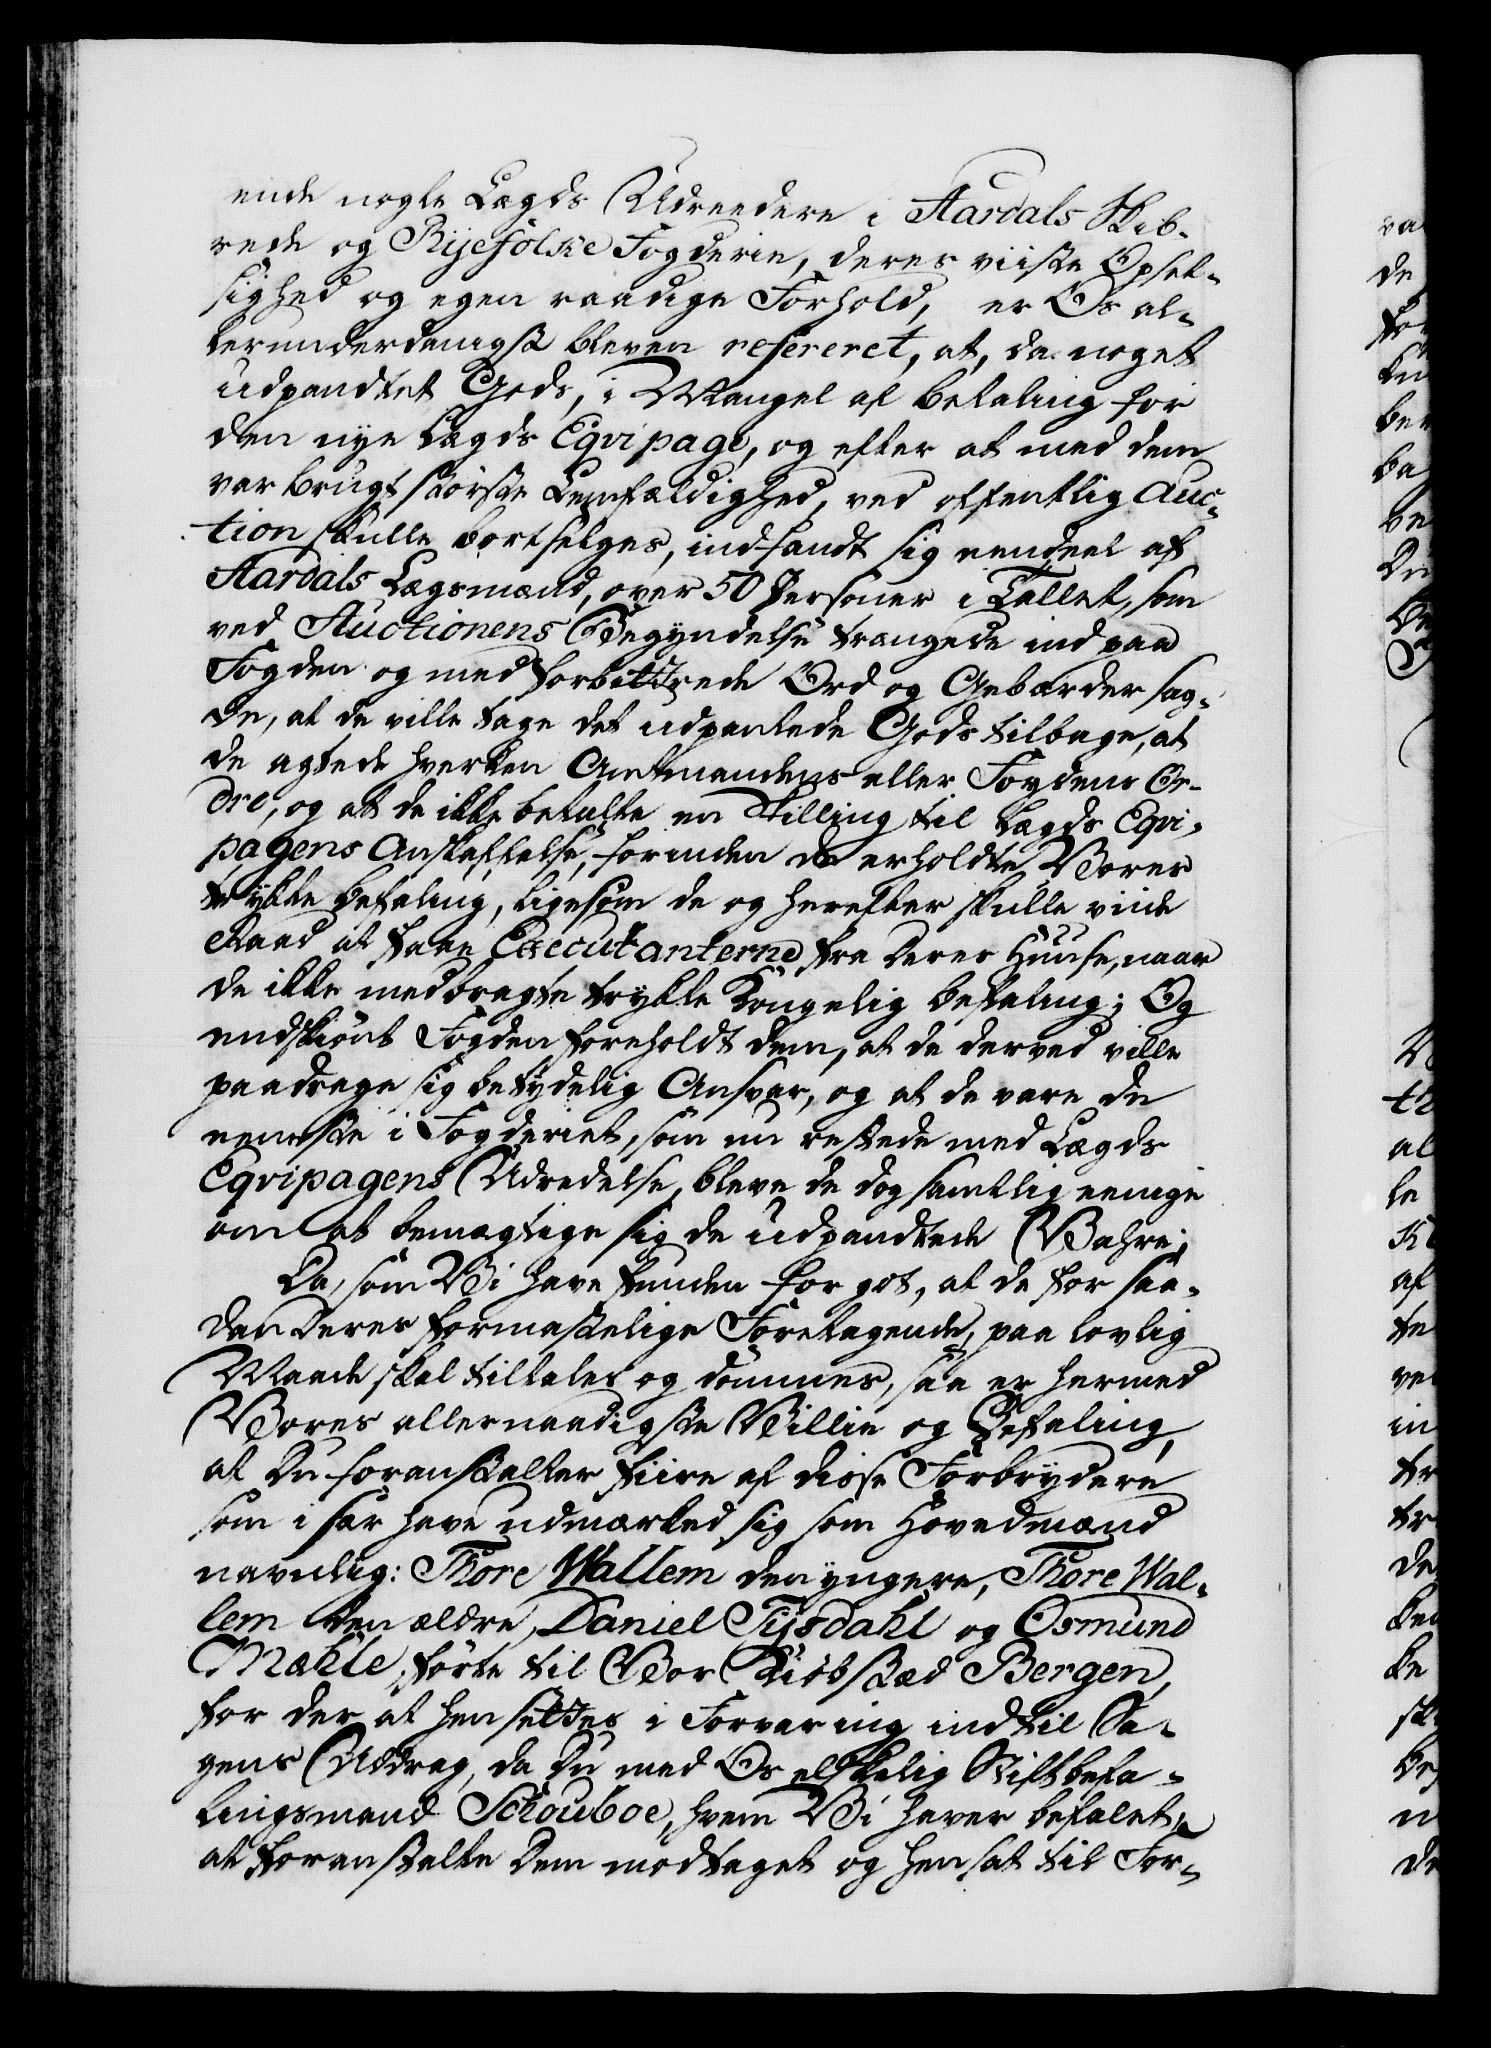 ende nogle Lægds Udreedere i Aardals Skib-
rede og Ryefolske Fogderie, deres viiste Opset-
sighed og egen raadige Forhold, er Os al-
lerunderdanigst bleven refereret, at, da noget
udpandtet Gods, i Mangel af betaling for
den nye Lægds Eqvipage, og efter at med dem
var brugt största Lemfældighed, ved offentlig Auc-
tion skulle bortselges, indfandt sig eendeel af
Aardals Lægsmænd, over 50 Personer i Tallet, som
ved Auctionens Begyndelse trængede ind paa
Fogden og med forbittrede Ord og Gebærder sag-
de, at de ville tage det udpantede Gods tilbage, at
de agtede hverken Amtmandens eller Fogdens Or-
dre, og at de ikke betalte en Skilling til Lægds Eqvi-
pagens Anskaffelse, forinden de erholdte Vores
trykte befaling, ligesom de og herefter skulle viide
Raad at faae Executanterne fra deres Huuse, naar
de ikke medbragte trykte Kongelig befaling; Og
endskiönt Fogden foreholdt dem, at de derved ville
paadrage sig betydelig Ansvar, og at de vare de
eeneste i Fogderiet, som nu restede med Lægds
Eqvipagens Udredelse, bleve de dog samtlig eenige
om at bemægtige sig de udpandtede Vahre;
Da, som Vi have funden for got, at de for saa-
dan deres formastelige Foretagende, paa lovlig
Maade skal tiltales og dömmes, saa er hermed
Vores allernaadigste Villie og Befaling,
at Du foranstalter fiire af disse Forbrydere
som i sær have udmærked sig som Hovedmænd
navnlig: Thore Wallem den yngere, Thore Wal-
lem den ældre, Daniel Tysdahl og Osmund
Mæhle, förte til Vor Kiöbstæd Bergen,
for der at hensettes i Forvaring indtil Sa-
gens Uddrag, da Du med Os elskelig Stiftbefa-
lingsmand Schouboe, hvem Vi haver befalet,
at foranstalte dem modtaget og hensat til For-